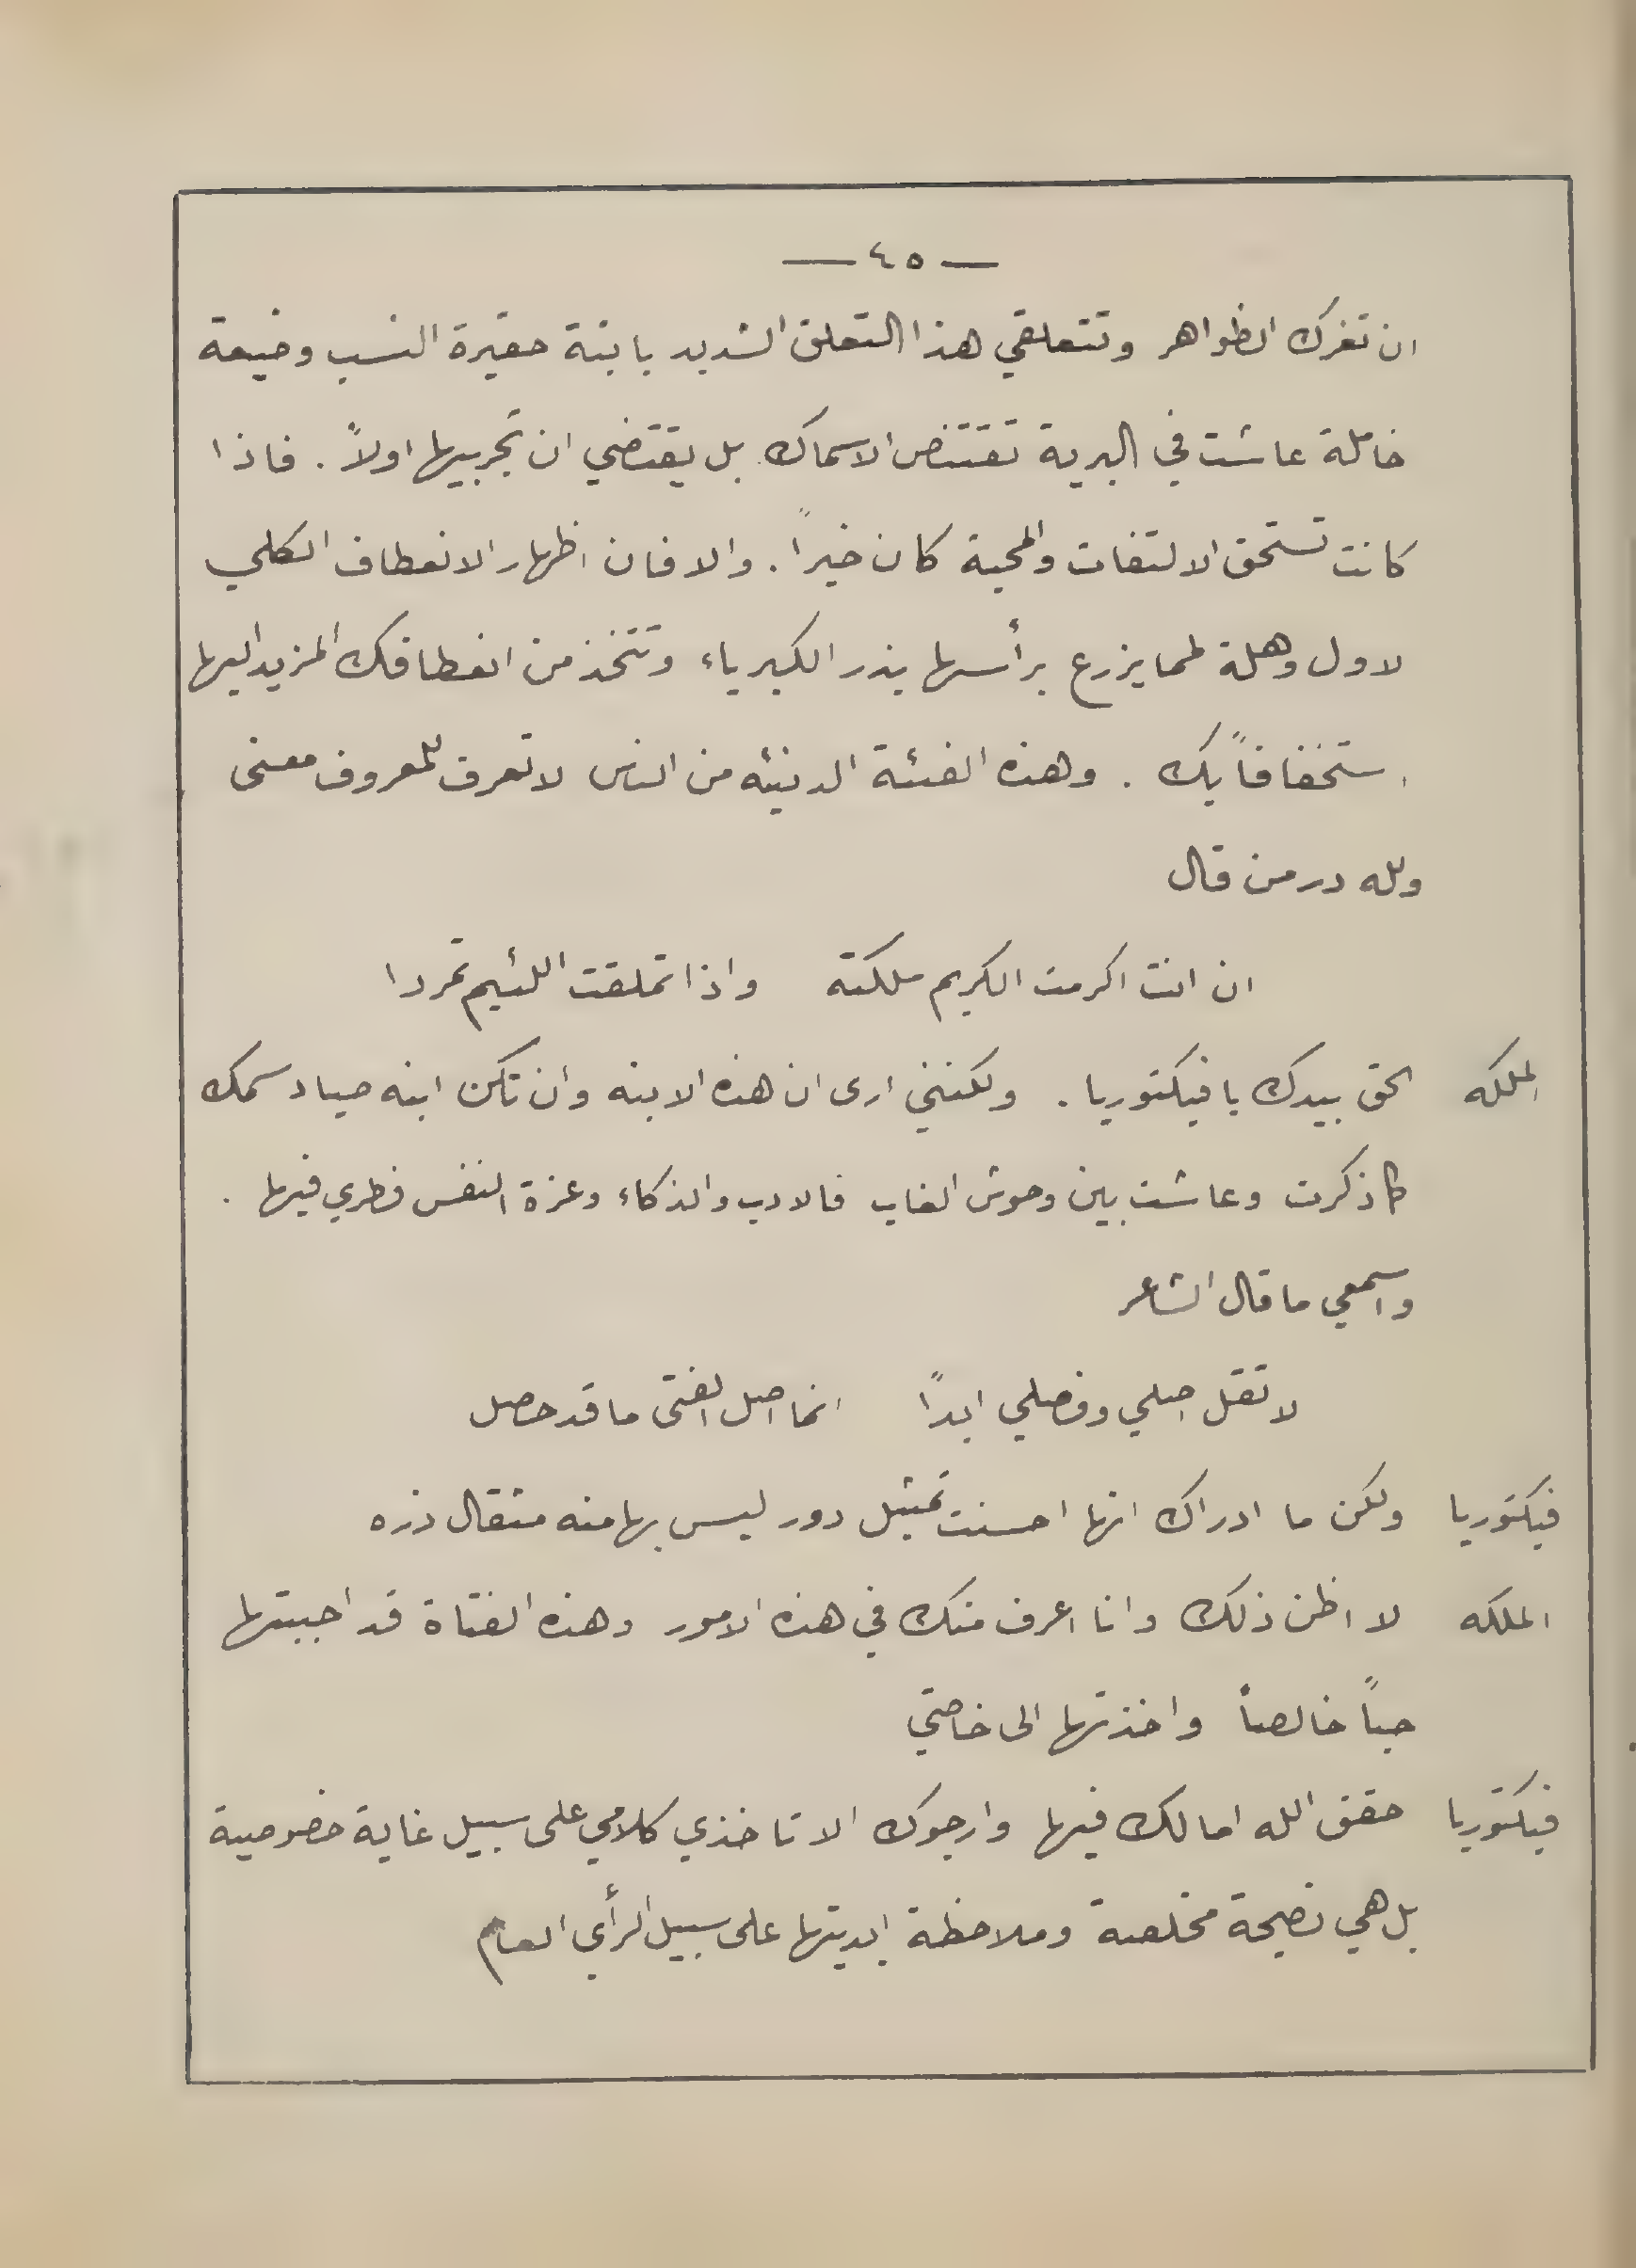 — ٤٥ —
ان تغرك الظواهر وتتعلقي هذا التعلق الشديد بابنة حقيرة النسب وضيعة
خاملة عاشت في البرية تقتنص الاسماك بل يقتضي ان تجربيها اولاً . فاذا
كانت تستحق الالتفات والمحبة كان خيراً . والا فان اظهار الانعطاف الكلي
لاول وهلة لمما يزرع برأسها بذر الكبرياء وتتخذ من انعطافك المزيد اليها
استخفافاً بك . وهذه الفئة الدنيئه من الناس لا تعرف للمعروف معنى
ولله در من قال
ان انت اكرمت الكريم ملكته واذا تملقت اللئيم تمردا
الملكه الحق بيدك يا فيكتوريا . ولكنني ارى ان هذه الابنه وان تكن ابنه صياد سمك
كما ذكرت وعاشت بين وحوش الغاب فالادب والذكاء وعزة النفس فطري فيها .
واسمعي ما قال الشاعر
لا تقل اصلي وفصلي ابداً انما اصل الفتى ما قد حصل
فيكتوريا ولكن ما ادراك انها احسنت تمثيل دور ليس بها منه مثقال ذره
الملكه لا اظن ذلك وانا اعرف منك في هذه الامور وهذه الفتاة قد احببتها
حباً خالصاً واخذتها الى خاصتي
فيكتوريا حقق الله امالك فيها وارجوك الا تاخذي كلامي على سبيل غاية خصوصية
بل هي نصيحة مخلصة وملاحظة ابديتها على سبيل الرأي العام